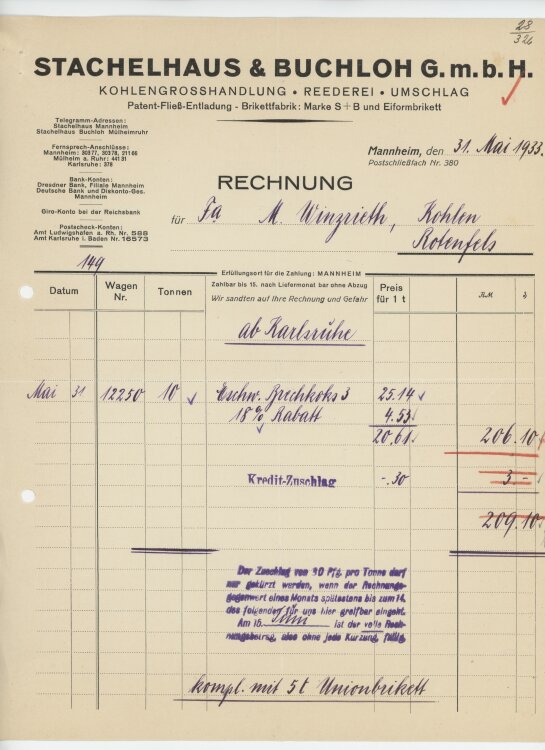 28
326
STACHELHAUS & BUCHLOH G.m.b.H.
KOHLENGROSSHANDLUNG • REEDEREI • UMSCHLAG
Patent-Fließ-Entladung - Brikettfabrik: Marke S+B und Eiformbrikett
Telegramm-Adressen:
Stachelhaus Mannheim
Stachelhaus Buchloh Mülheimruhr
Fernsprech-Anschlüsse:
Mannheim: 30377, 30378, 21166
Mülheim a. Ruhr: 44131
Karlsruhe: 378
Bank-Konten:
Dresdner Bank, Filiale Mannheim
Deutsche Bank und Diskonto-Ges.
Mannheim
Giro-Konto bei der Reichsbank
Postscheck-Konten:
Amt Ludwigshafen a. Rh. Nr. 588
Amt Karlsruhe i. Baden Nr. 16573
Mannheim, den 31. Mai 1933.
Postschließfach Nr. 380
RECHNUNG
für Fa M. Winzrieth, Kohlen
Rotenfels
149
Erfüllungsort für die Zahlung: MANNHEIM
Datum Wagen Nr. Tonnen Zahlbar bis 15. nach Liefermonat bar ohne Abzug Preis für 1 t RM
Wir sandten auf Ihre Rechnung und Gefahr
ab Karlsruhe
Mai 31 12250 10 Eschw. Brechkoks 3 25.14
18% Rabatt 4.53
20.61 206.10
Kredit-Zuschlag -.30 3.-
209.10
Der Zuschlag von 30 Pfg. pro Tonne darf
nur gekürzt werden, wenn der Rechnungs-
gegenwert eines Monats spätestens bis zum 14.
des folgenden für uns hier greifbar eingeht.
Am 15. Juni ist der volle Rech-
nungsbetrag, also ohne jede Kürzung, fällig.
kompl. mit 5 t Unionbrikett